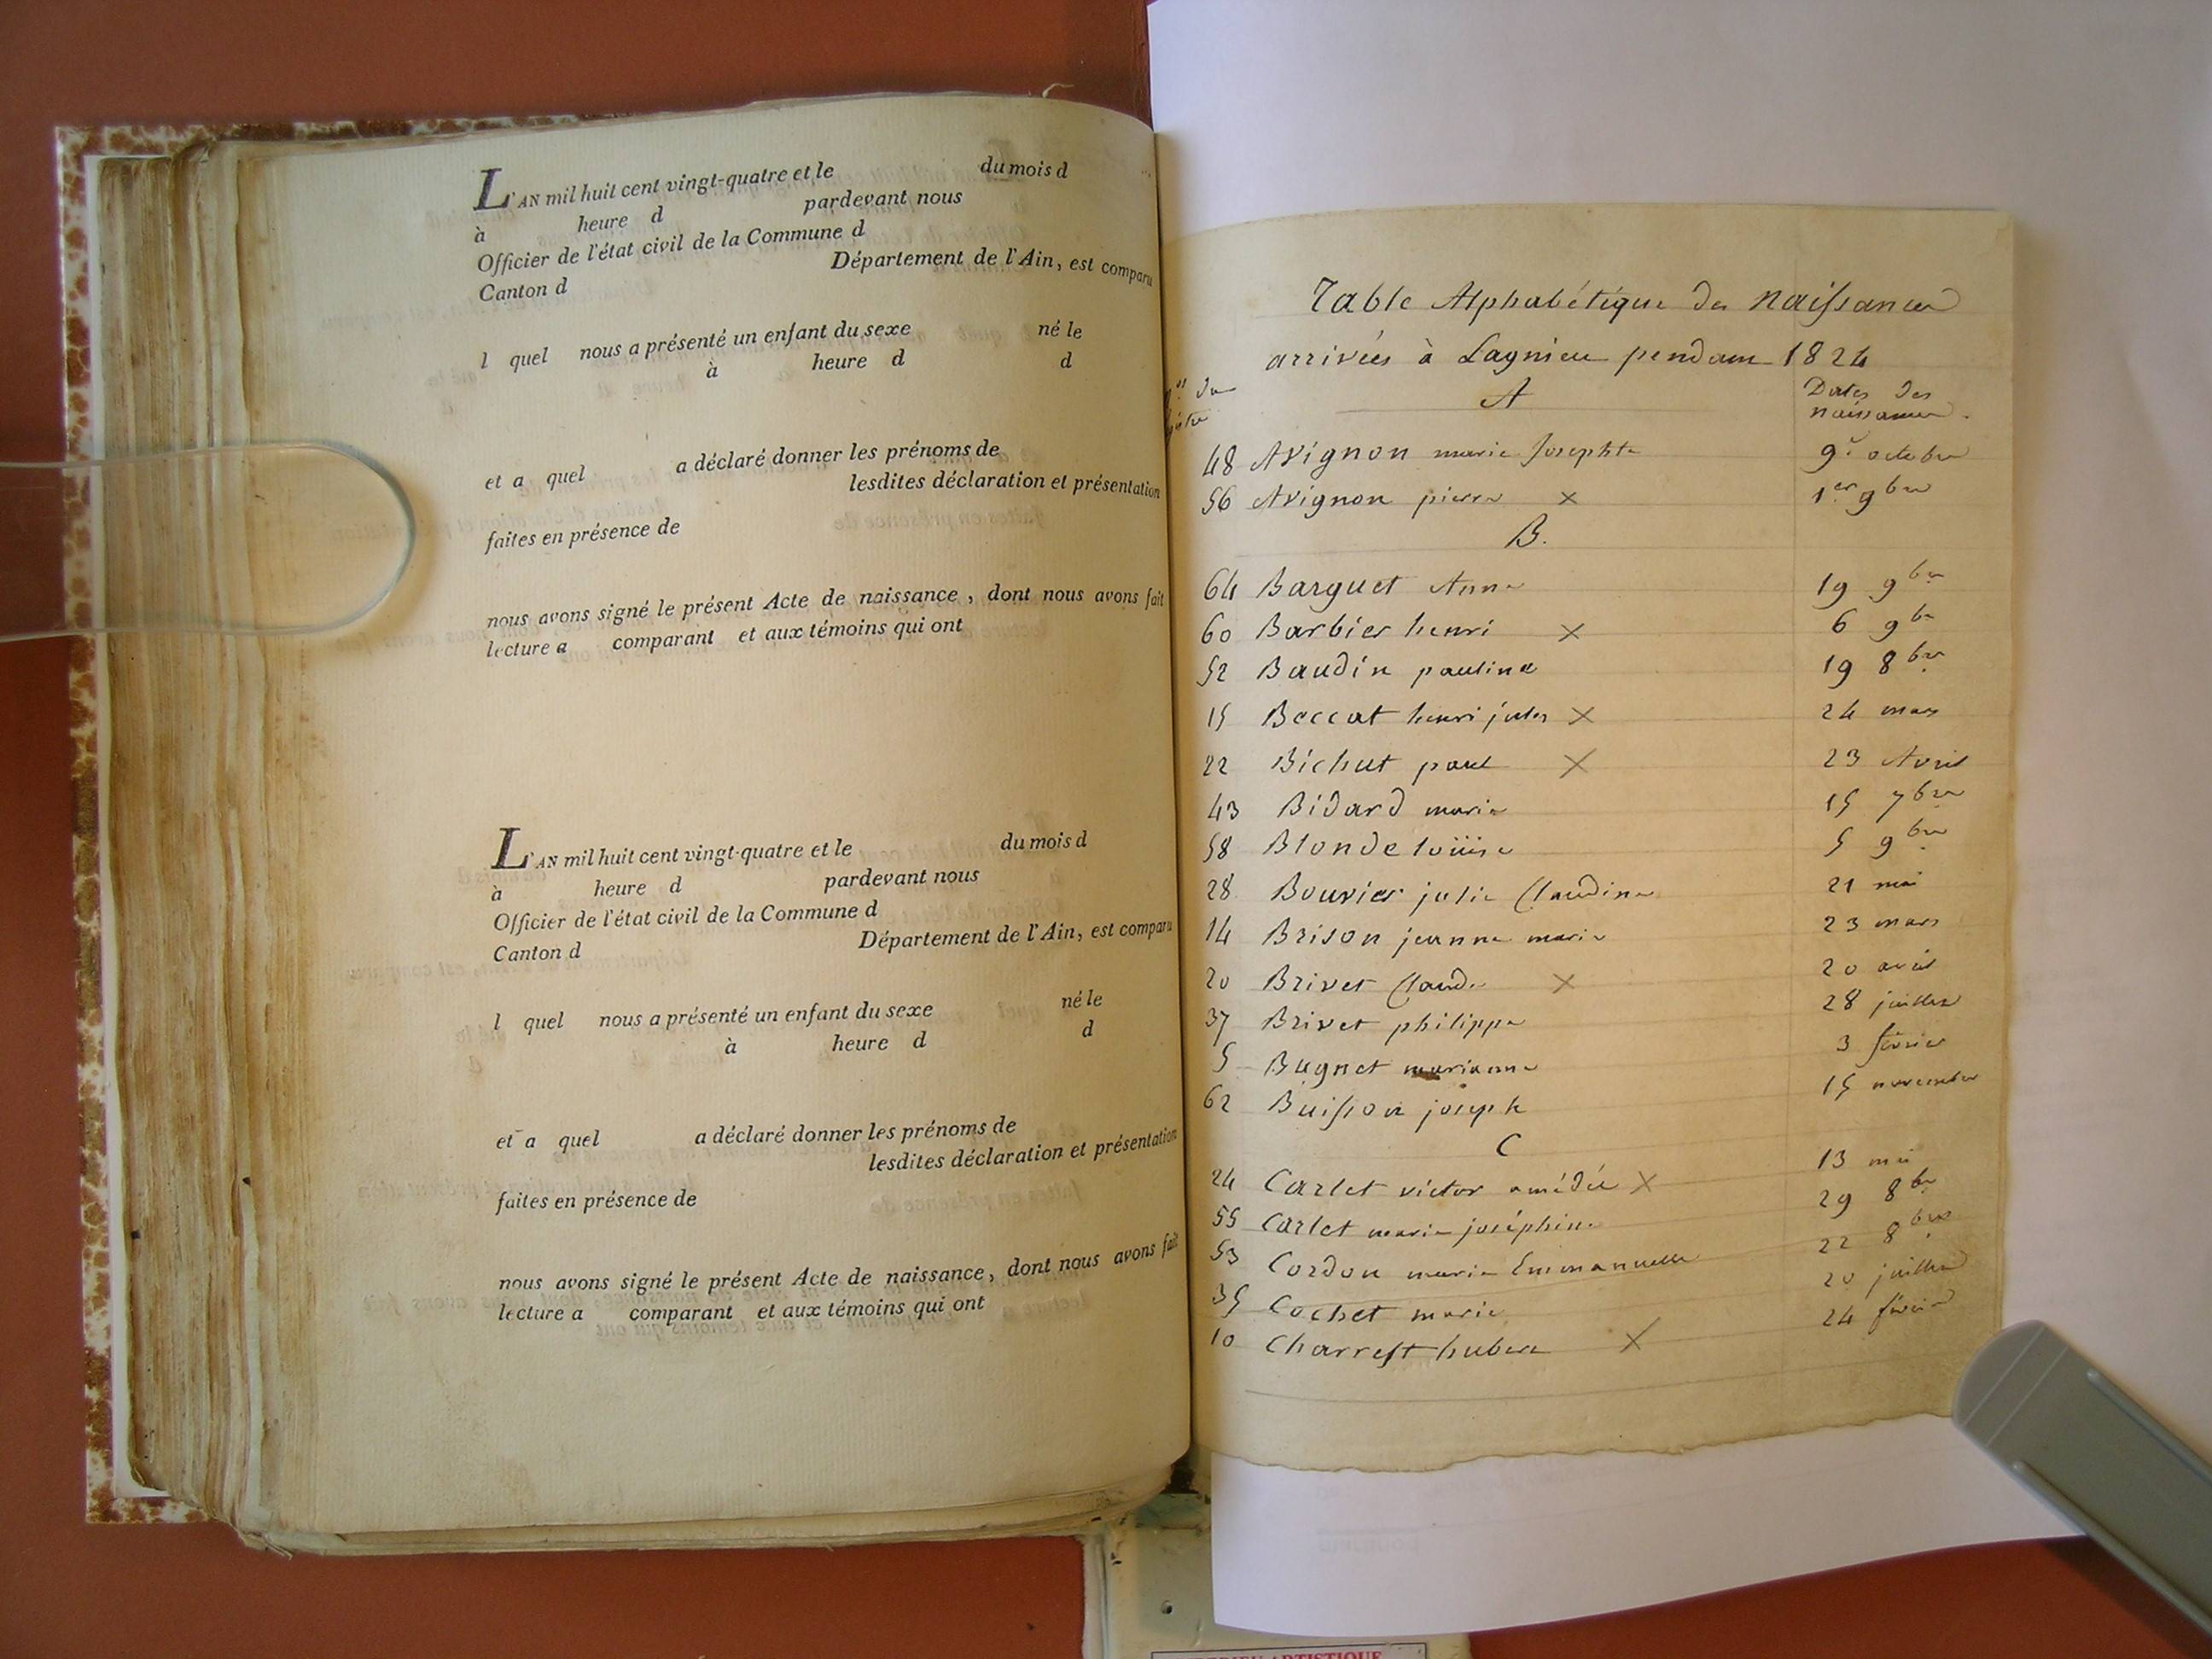 L'AN mil huit cent vingt-quatre et le du mois d
à heure d pardevant nous
Officier de l'état civil de la Commune d
Canton d Département de l'Ain, est comparu
l quel nous a présenté un enfant du sexe né le
à heure d d
et a quel a déclaré donner les prénoms de
lesdites déclaration et présentation
faites en présence de
nous avons signé le présent Acte de naissance, dont nous avons fait
lecture a comparant et aux témoins qui ont
L'AN mil huit cent vingt-quatre et le du mois d
à heure d pardevant nous
Officier de l'état civil de la Commune d
Canton d Département de l'Ain, est comparu
l quel nous a présenté un enfant du sexe né le
à heure d d
et a quel a déclaré donner les prénoms de
lesdites déclaration et présentation
faites en présence de
nous avons signé le présent Acte de naissance, dont nous avons fait
lecture a comparant et aux témoins qui ont
Table Alphabétique des naissances
arrivées à Lagnieu pendant 1824
A
Dates des
naissances.
48 Avignon marie Josephte 9 octobre
56 Avignon pierre X 1er 9bre
B.
64 Barguet Anne 19 9bre
60 Barbier henri X 6 9bre
52 Baudin pauline 19 8bre
15 Beccat henri jules X 24 mars
22 Bichut paul X 23 Avril
43 Bidard marie 15 7bre
58 Blonde loüise 5 9bre
28 Bouvier julie Claudine 21 mai
14 Brison jeanne marie 23 mars
20 Brivet Claude X 20 avril
37 Brivet philippe 28 juillet
5 Bugnet marianne 3 février
62 Buisson joseph 15 novembre
C
24 Carlet victor amédée X 13 mai
55 Carlet marie joséphine 29 8bre
53 Cordon marie Emmanuelle 22 8bre
35 Cochet marie 20 juillet
10 Charrest hubert X 24 février
ARTISTIQUE